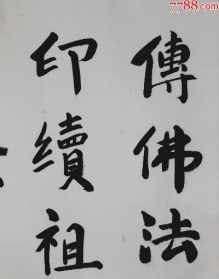 傳佛法
印續祖
7788.com